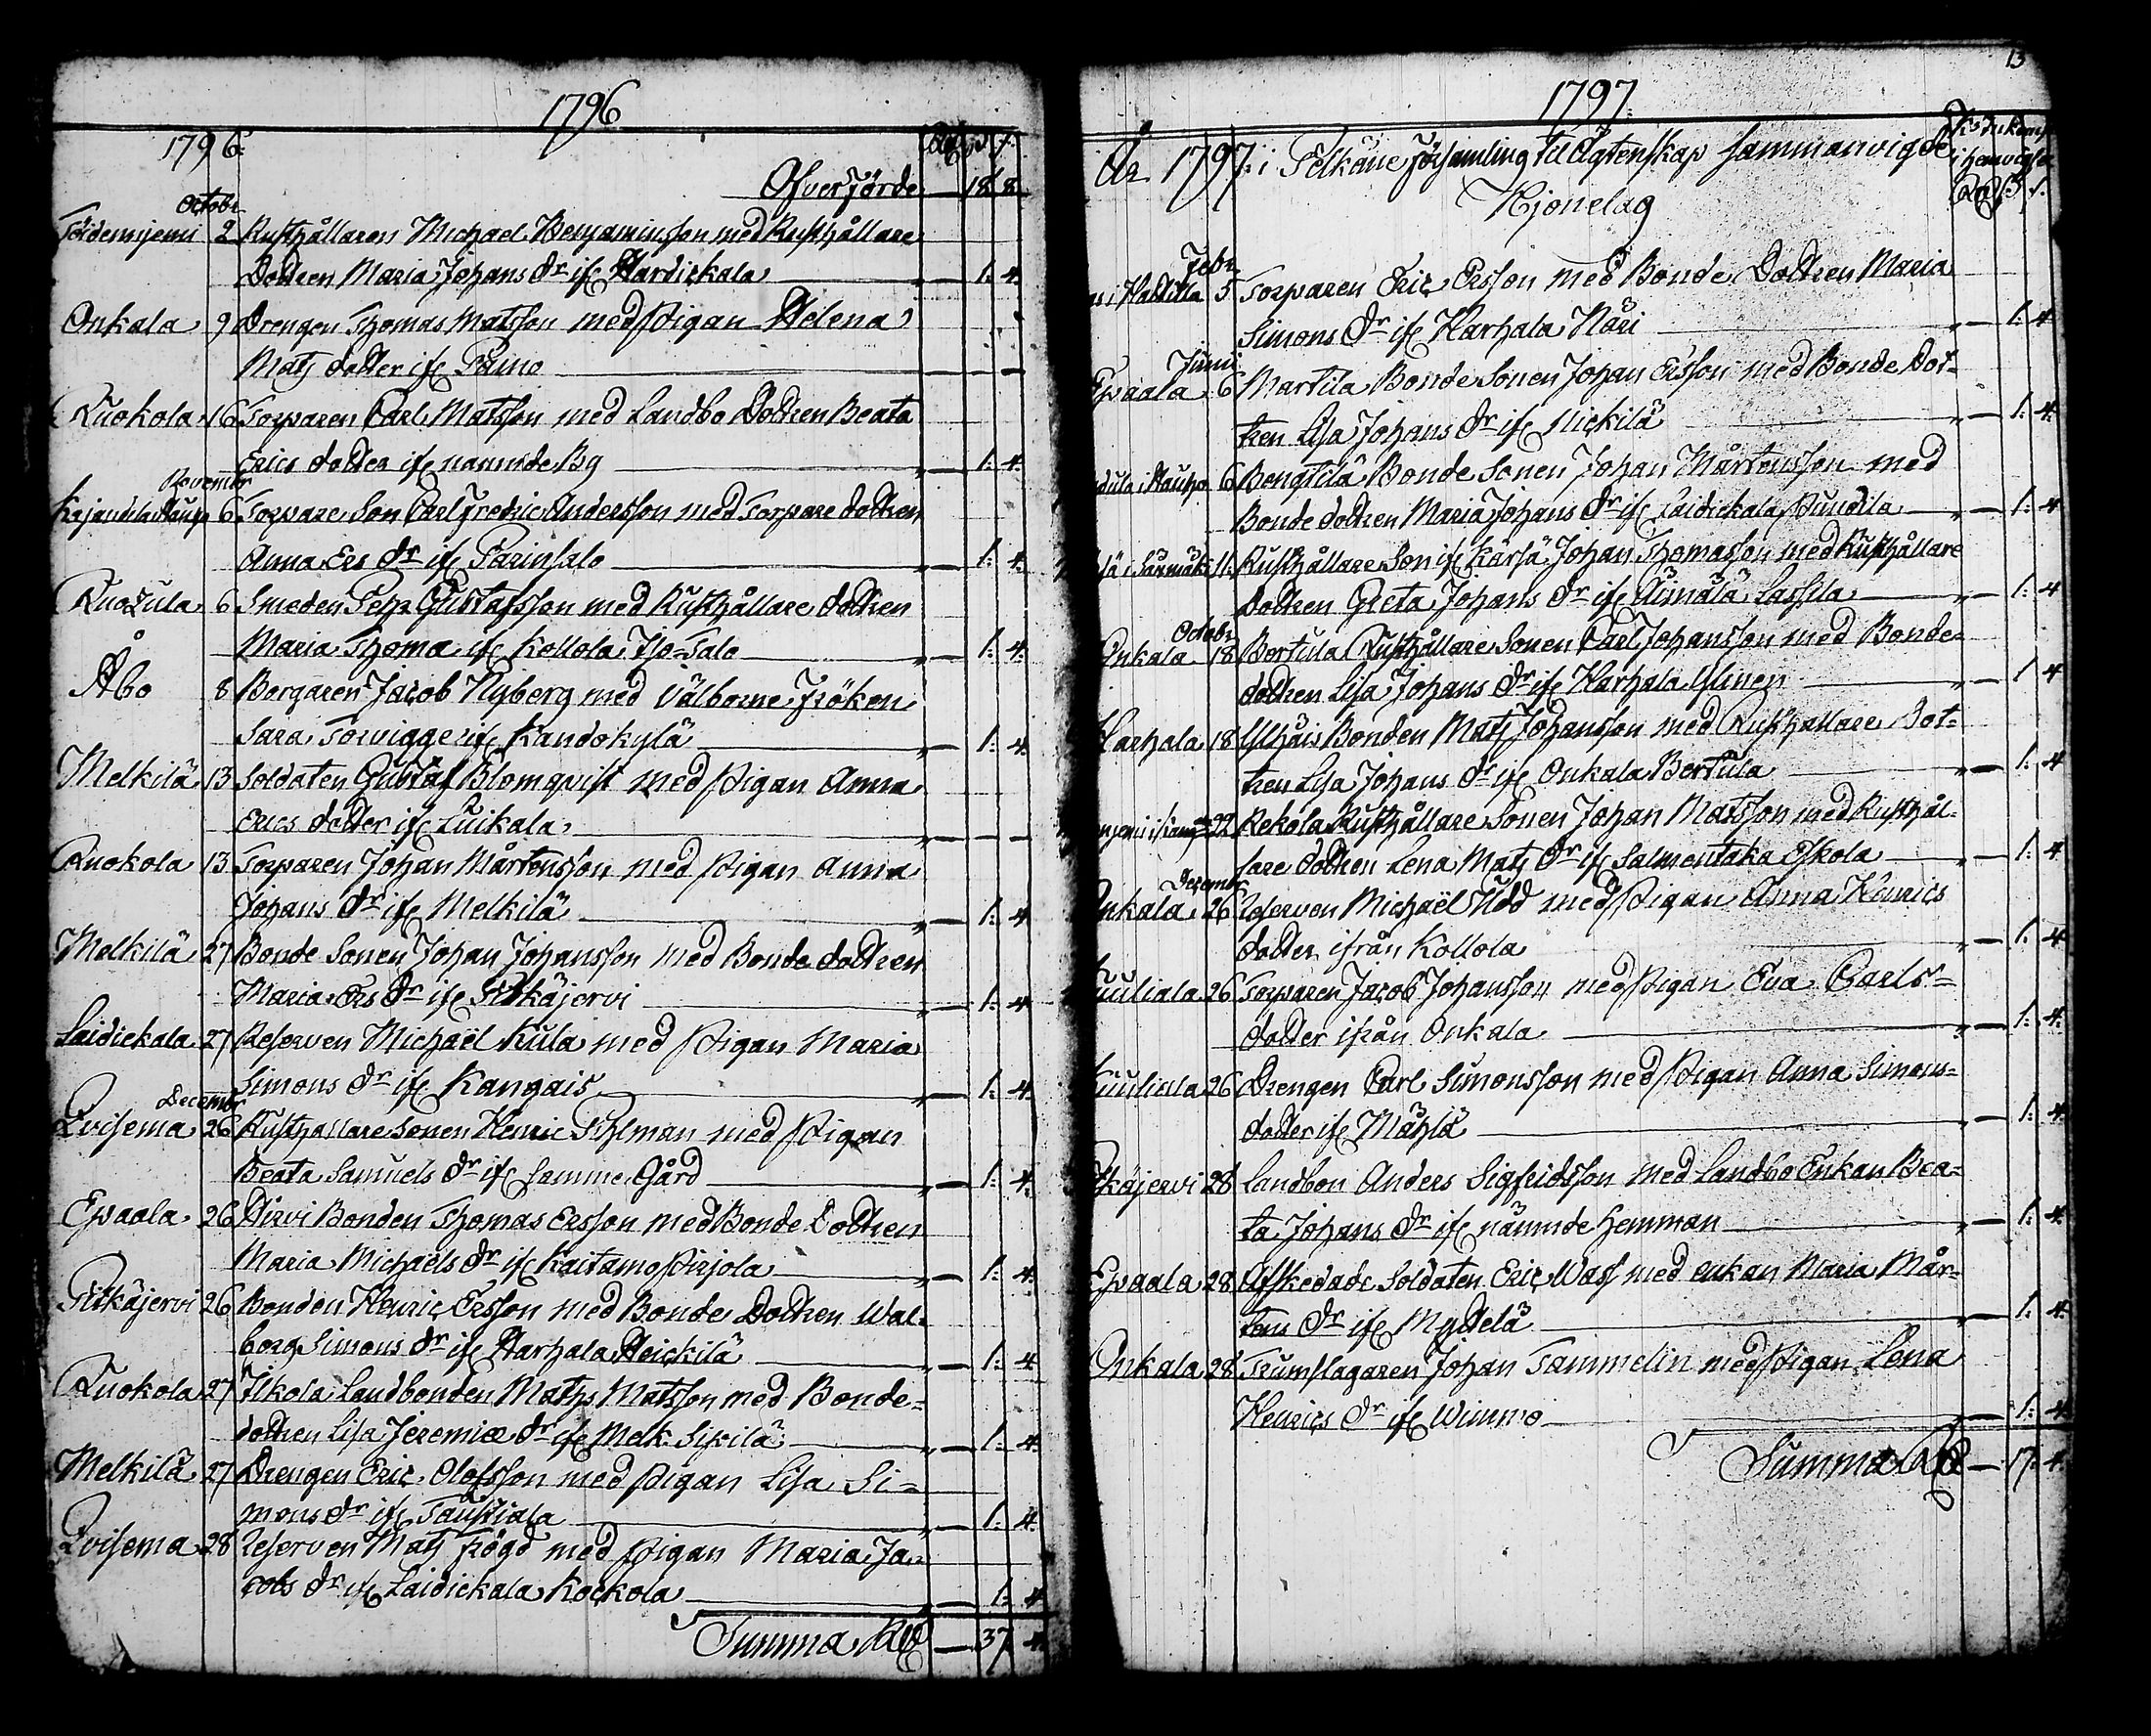 1796
1796.
Öfverförde — 18 8
Octobr
2 Rusthållaren Michael Benjaminsson med Rusthållare
Dottren Maria Johans dr if: Hardickala — 1: 4.
Onkala 9 Drengen Thomas Matsson med Pigan Helena
Mats dotter if: Paino — — —
Ruokola 16 Torparen Carl Matsson med Landbo Dottren Beata
Erics dotter if: namnde By — 1: 4.
Novembr
6 Torpare Son Carl Fredric Andersson med Torpare dottren
Anna Ers dr if: Parinsalo — 1: 4.
6 Smeden Petr Gustafsson med Rusthållare dottren
Maria Thomæ if: Kollola Iso-Talo — 1: 4.
Åbo 8 Borgaren Jacob Nyberg med Välborne Fröken
Sara Torvigge if: Kandokylä — 1: 4.
Melkilä 13 Soldaten Gustaf Blomqvist med Pigan Anna
Erics dotter if: Luikala — — —
Ruokola 13 Torparen Johan Mårtensson med Pigan Anna
Johans dr if: Melkilä — 1: 4
Melkilä 27 Bonde Sonen Johan Johansson med Bonde dottren
Maria Ers dr if: Pitkäjervi — 1: 4
Laidickala 27 Reserven Michaël Kula med Pigan Maria
Simons dr if: Kangais — 1: 4.
Decembr
Qvisema 26 Rusthållare Sonen Henric Pihlman med Pigan
Beata Samuels dr if: samme Gård — 1: 4.
Epaala 26 Hirvi Bonden Thomas Ersson med Bonde Dottren
Maria Michaels dr if: Kaitamo Pirjola — 1: 4.
Pitkäjervi 26 Bonden Henric Ersson med Bonde Dottren Wal-
borg Simons dr if: Harhala Heickilä — 1: 4
Ruokola 27 Ilkola Landbonden Maths Matsson med Bonde-
dottren Lisa Jeremiæ dr if: Melk: Sipilä — 1: 4.
Melkilä 27 Drengen Eric Olofsson med Pigan Lisa Si-
mons dr if: Taustiala — 1: 4.
Qvisema 28 Reserven Mats Frögd med Pigan Maria Ja-
cobs dr if: Laidickala Kockola — 1: 4
Summa — 37 4.
13
1797.
År 1797 i Pelkäne Församling til Ägtenskap sammanvigde
Hjonelag
Febr
5 Torparen Eric Ersson med Bonde Dottren Maria
Simons dr if: Harhala Näri — 1: 4
Junii
Epaala 6 Martila Bonde Sonen Johan Ersson med Bonde Dot-
tren Lisa Johans dr if: Nickilä — 1: 4.
6 Bengtilä Bonde Sonen Johan Mårtensson med
Bonde dottren Maria Johans dr if: Laidickala Pundila — 1: 4
11. Rusthållare Son if: Kärsä Johan Thomasson med Rusthållare
Dottren Greta Johans dr if: Äimälä Lassila — 1: 4
Octobr
Onkala 18 Bertula Rusthållare Sonen Carl Johansson med Bonde-
dottren Lisa Johans dr if: Harhala Ylinen — 1 4
Harhala 18 Bonden Mats Johansson med Rusthållare Dot-
tren Lisa Johans dr if: Onkala Bertula — 1: 4
22 Rekola Rusthållare Sonen Johan Matsson med Rusthål-
lare dottren Lena Mats dr if: Salmentaka Eskola — 1: 4
Decembr
Onkala 26 Reserven Michaël Udd med Pigan Anna Henrics
dotter ifrån Kollola — 1: 4
Kuuliala 26 Torparen Jacob Johansson med Pigan Eva Carls-
dotter ifrån Onkala — 1: 4.
Kuuliala 26 Drengen Carl Simonsson med Pigan Anna Simons-
dotter if: Mählä — 1: 4
Pitkäjervi 28 Landbon Anders Sigfridsson med Landbo Enkan Bea-
ta Johans dr if: nämnde Hemman — 1: 4.
Epaala 28 Afskedade Soldaten Eric Wass med enkan Maria Mår-
tens dr if: Myttelä — 1: 4.
Onkala 28 Trumslagaren Johan Tammelin med Pigan Lena
Henrics dr if: Wimmo — 1: 4
Summa — 17: 4.